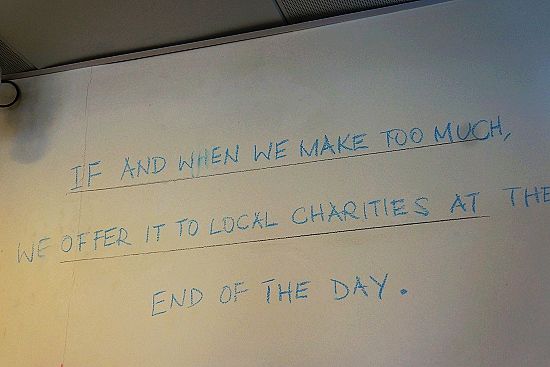 IF AND WHEN WE MAKE TOO MUCH,
WE OFFER IT TO LOCAL CHARITIES AT THE
END OF THE DAY.